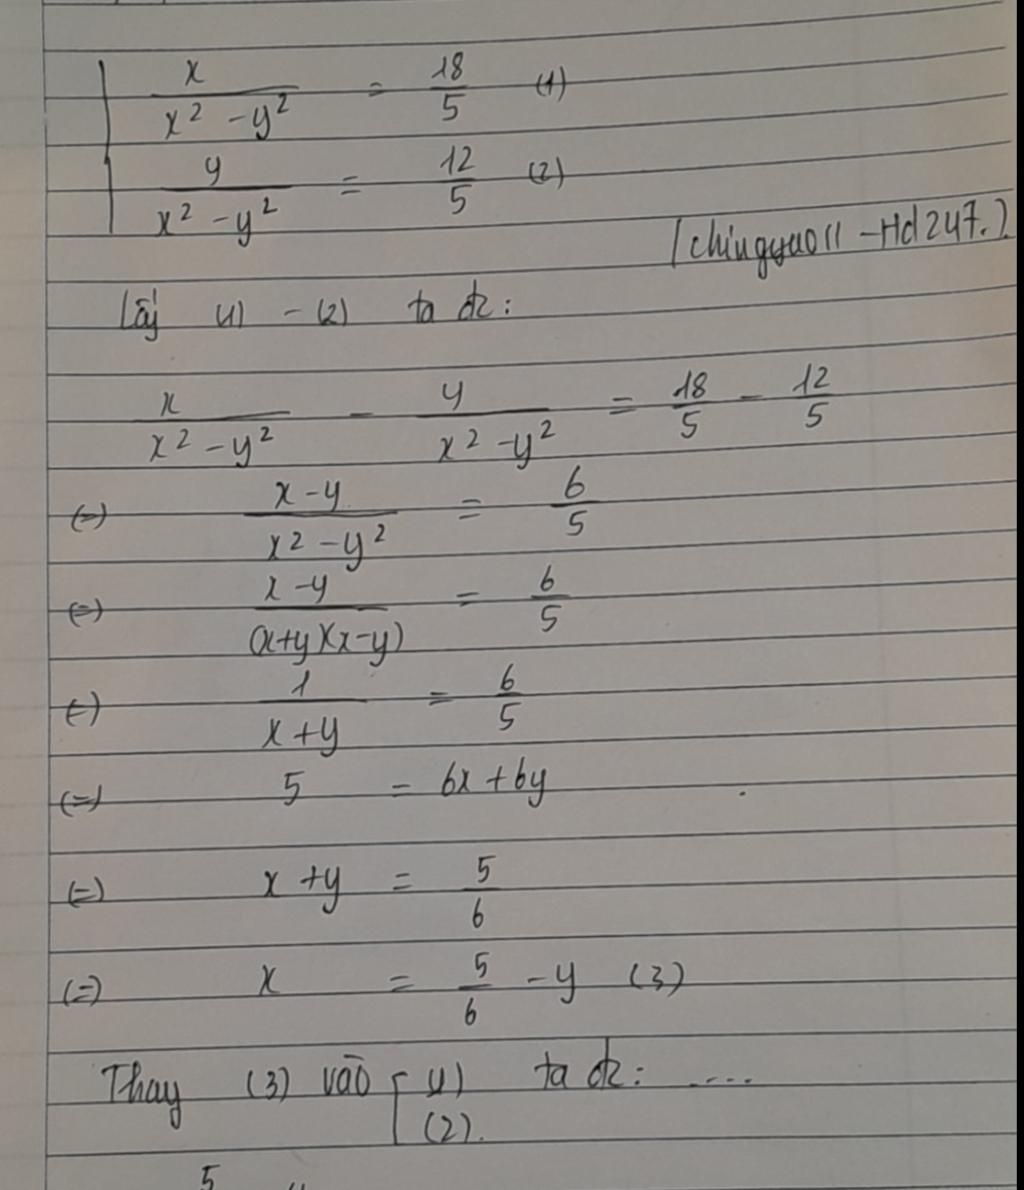 x/(x² - y²) = 18/5 (1)
y/(x² - y²) = 12/5 (2)
[chiingyuo11 - Hd247.]
Lấy (1) - (2) ta đc:
x/(x² - y²) - y/(x² - y²) = 18/5 - 12/5
(=) (x - y)/(x² - y²) = 6/5
(=) (x - y)/((x+y)(x-y)) = 6/5
(=) 1/(x + y) = 6/5
(=) 5 = 6x + 6y
(=) x + y = 5/6
(=) x = 5/6 - y (3)
Thay (3) vào [ (1) ta đc: ....
(2).
5